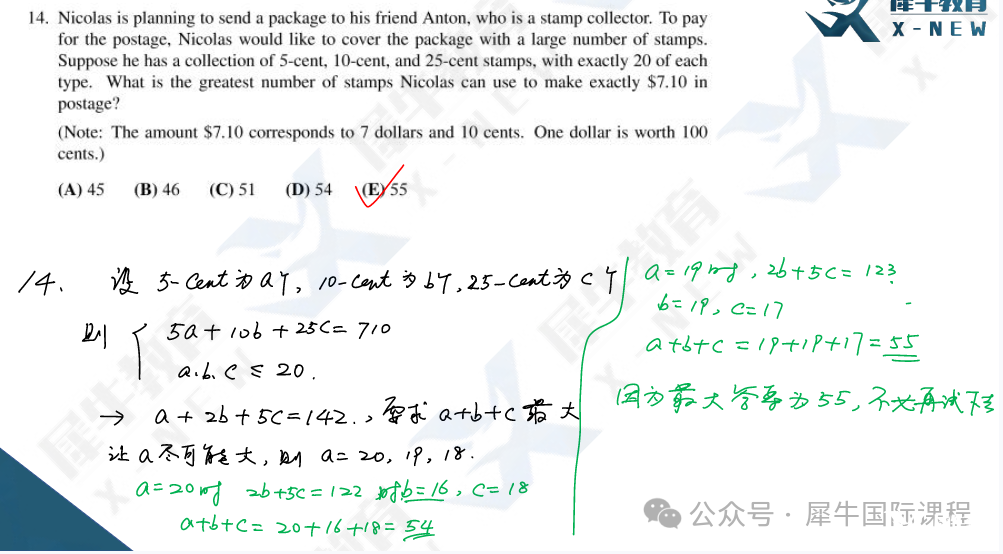 犀牛教育
X-NEW
14. Nicolas is planning to send a package to his friend Anton, who is a stamp collector. To pay
for the postage, Nicolas would like to cover the package with a large number of stamps.
Suppose he has a collection of 5-cent, 10-cent, and 25-cent stamps, with exactly 20 of each
type. What is the greatest number of stamps Nicolas can use to make exactly $7.10 in
postage?
(Note: The amount $7.10 corresponds to 7 dollars and 10 cents. One dollar is worth 100
cents.)
(A) 45 (B) 46 (C) 51 (D) 54 (E) 55
14. 设 5-cent为a个, 10-cent为b个, 25-cent为c个
则 { 5a + 10b + 25c = 710
a.b.c ≤ 20.
→ a + 2b + 5c = 142., 要求 a+b+c 最大
让a尽可能大, 则 a = 20, 19, 18.
a=20时 2b+5c = 122 时b=16, c=18
a+b+c = 20+16+18 = 54
a = 19时, 2b+5c = 123
b=19, c=17
a+b+c = 19+19+17 = 55
因为最大答案为55, 不必再试下去
公众号 · 犀牛国际课程